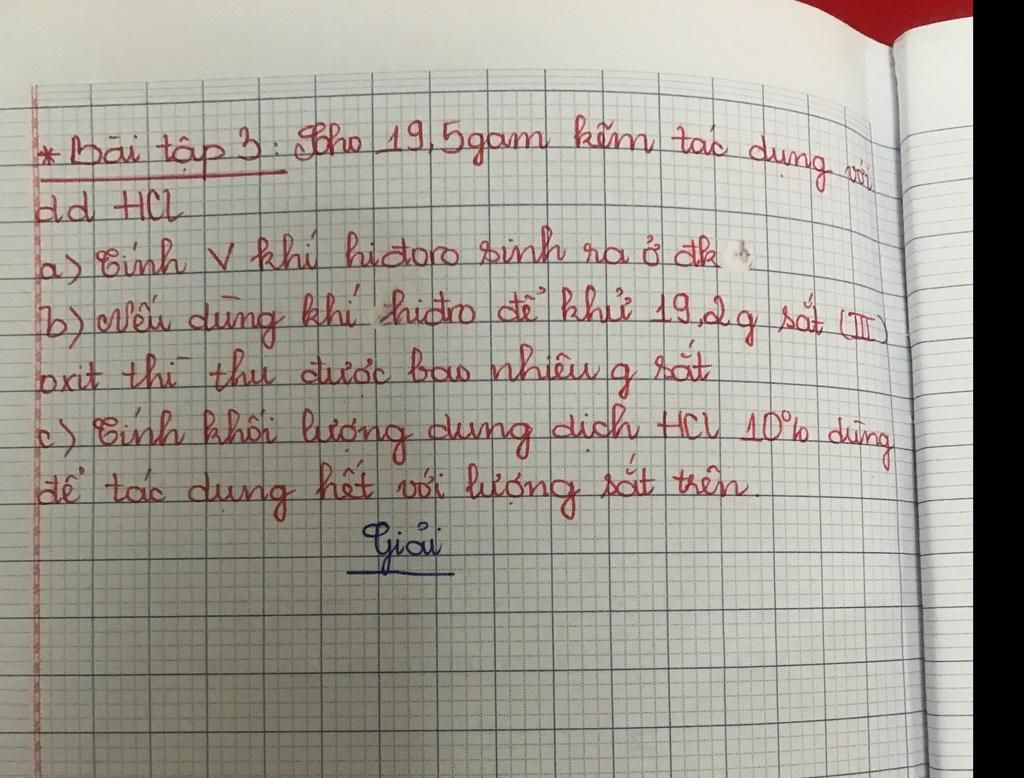 * Bài tập 3: Cho 19,5gam kẽm tác dụng với
dd HCl
a) Tính V khí hidoro sinh ra ở đk
b) Nếu dùng khí hidro để khử 19,2g sắt (III)
oxit thì thu được bao nhiêu g sắt
c) Tính khối lượng dung dịch HCl 10% dùng
để tác dụng hết với lượng sắt trên.
Giải